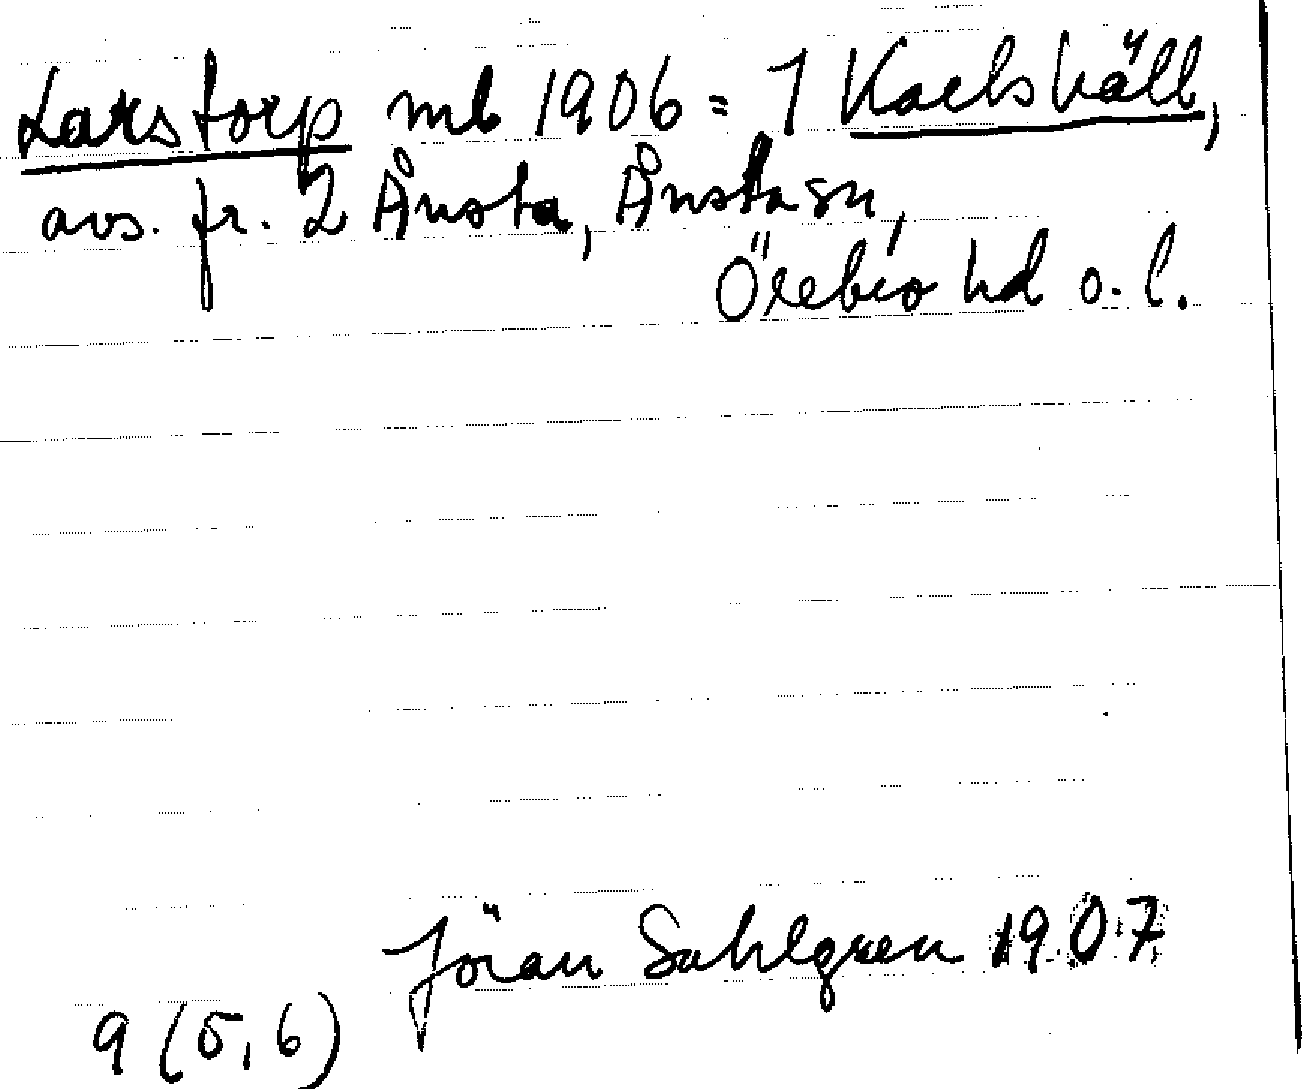 Larstorp mb 1906 = 1 Karlshäll,
avs. fr. 2 Ånsta, Ånsta sn,
Örebro hd o. l.
Jöran Sahlgren 1907
9 (5,6)